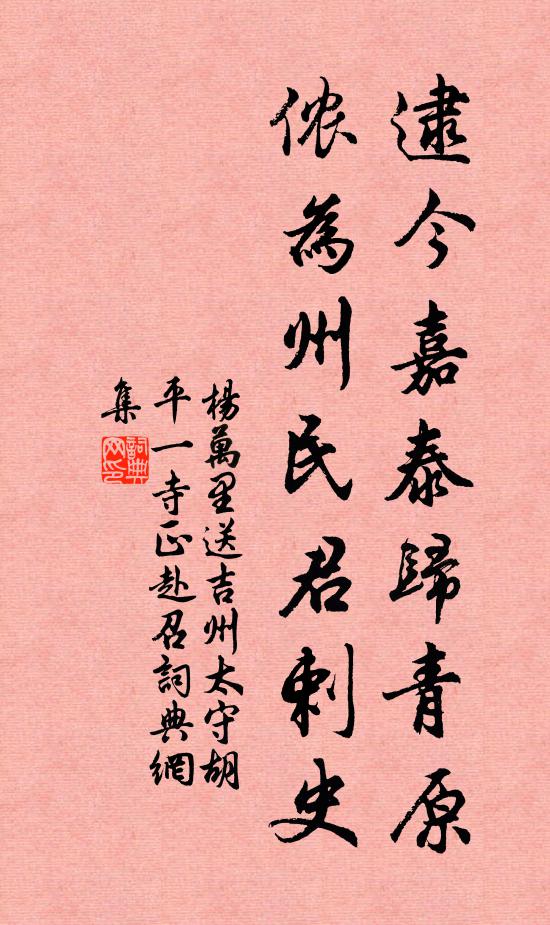 逮今嘉泰歸青原
侬為州民君刺史
楊萬里送吉州太守胡
平一寺正赴召詞典網
集
詞典
网印